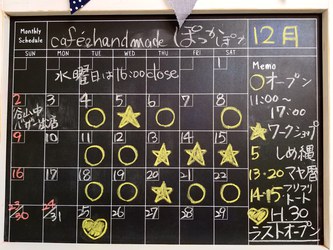 Monthly Schedule
café&handmade ぽっかぽか 12月
SUN MON TUE WED THU FRI SAT
水曜日は16:00close
1
2 3 4 5 6 7 8
バザー出店
9 10 11 12 13 14 15
16 17 18 19 20 21 22
23/30 24/31 25 26 27 28 29
Memo
オープン
11:00〜
17:00
ワークショップ
5 しめ縄
13・20 マヤ暦
14・15 フリフリ
トート
H.30
ラストオープン